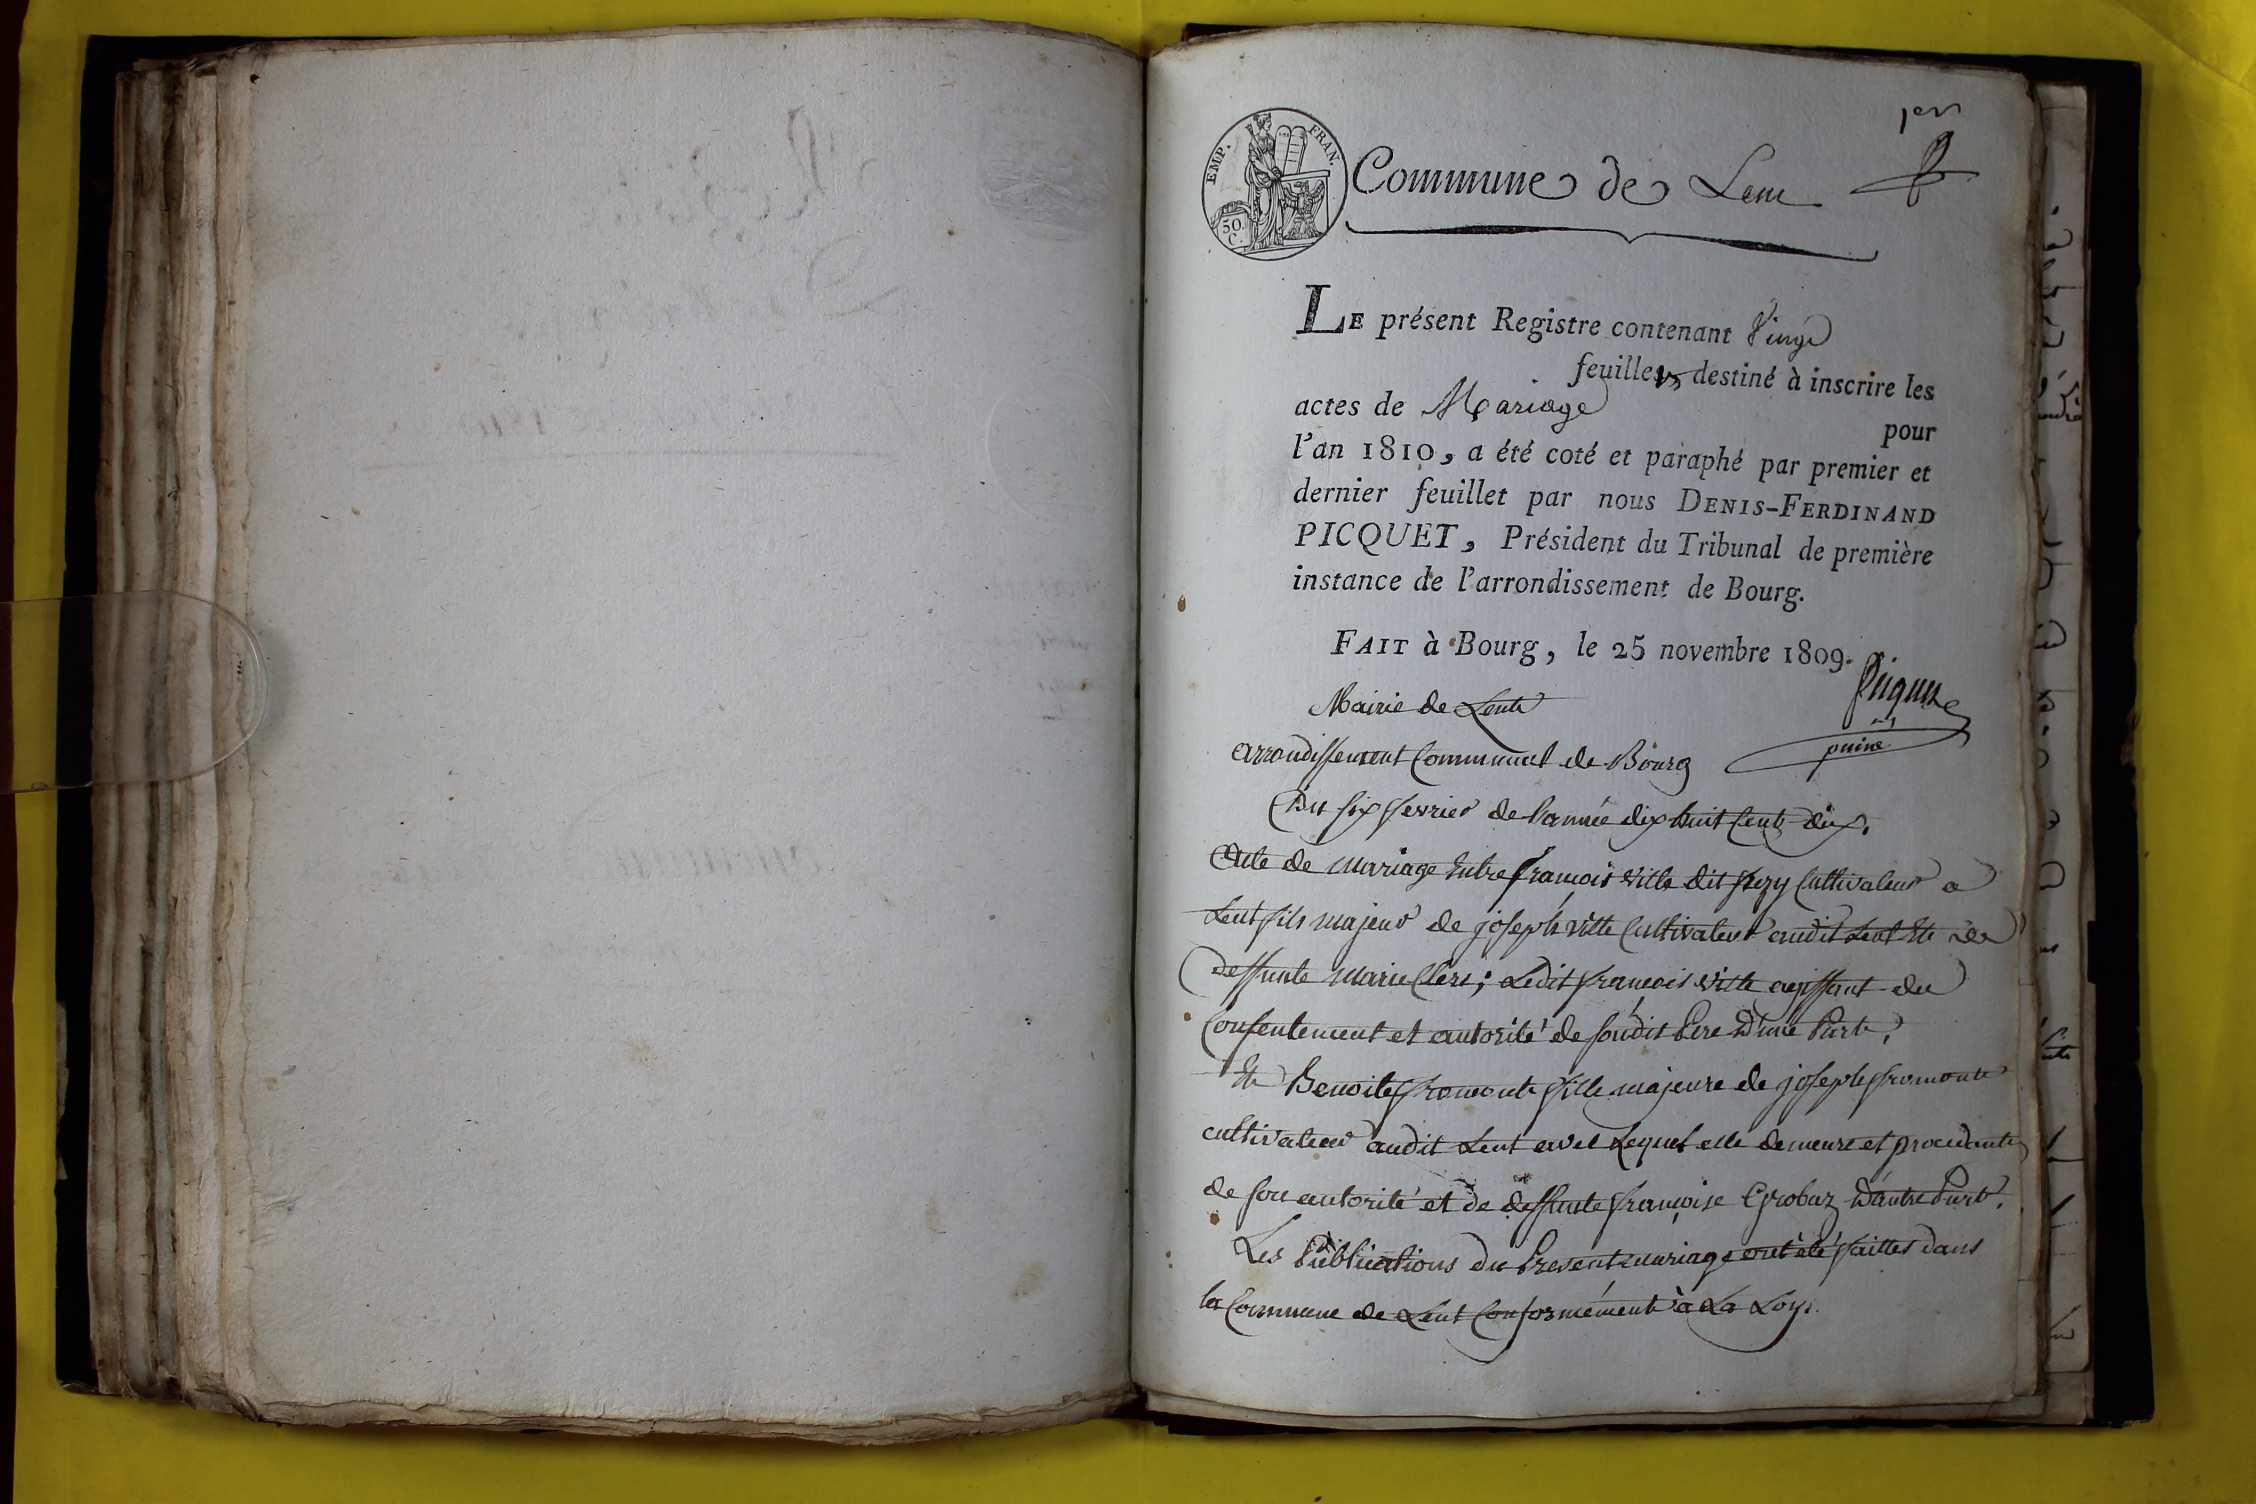 1er
EMP. FRAN.
50 C.
Commune de Lent
LE présent Registre contenant Vingt
feuillets destiné à inscrire les
actes de Mariage
pour
l'an 1810, a été coté et paraphé par premier et
dernier feuillet par nous DENIS-FERDINAND
PICQUET, Président du Tribunal de première
instance de l'arrondissement de Bourg.
FAIT à Bourg, le 25 novembre 1809.
Picquet
puiné
Mairie de Lent
arrondissement Communal de Bourg
Du six fevrier de l'année dix huit cent dix.
Acte de mariage Entre françois ville dit cultivateur a
Lent fils majeur de joseph ville Cultivateur audit Lent Et de
deffunte marie Clerc; Ledit françois ville agissant du
Consentement et autorité de sondit Pere D'une Part,
Et Benoite fromont fille majeure de joseph fromont
cultivateur audit Lent avec Lequel elle demeure et procedante
de son autorité et de deffunte françoise Grobaz D'autre Part.
Les Publications du Present mariage ont été faittes dans
la Commune de Lent Conformément à La Loy.